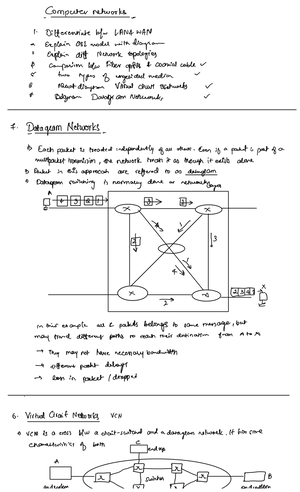 Computer networks
1. Differentiate b/w LAN & WAN
2 Explain OSI model with diagram
3 Explain diff Network topologies
4 Comparison b/w Fiber optic & coaxial cable ✓
5 two types of unguided media ✓
6 Neat diagram Virtual Circuit Networks ✓
7 Diagram Datagram Networks ✓
7. Datagram Networks
Each packet is treated independently of all others. Even if a packet is part of a
multipacket transmission, the network treats it as though it exists alone
Packets in this approach are referred to as datagram
Datagram switching is normally done at network
layer
A
4 3 2 1
X
In this example all 4 packets belongs to same message, but
may travel different paths to reach their destination from A to X
→ They may not have necessary bandwidth
→ different packet delays
→ loss in packet / dropped
6. Virtual Circuit Networks VCN
VCN is a cross b/w a circuit-switched and a datagram network. It has some
characteristics of both
C
end sys
A
B
Switches
end system
end system